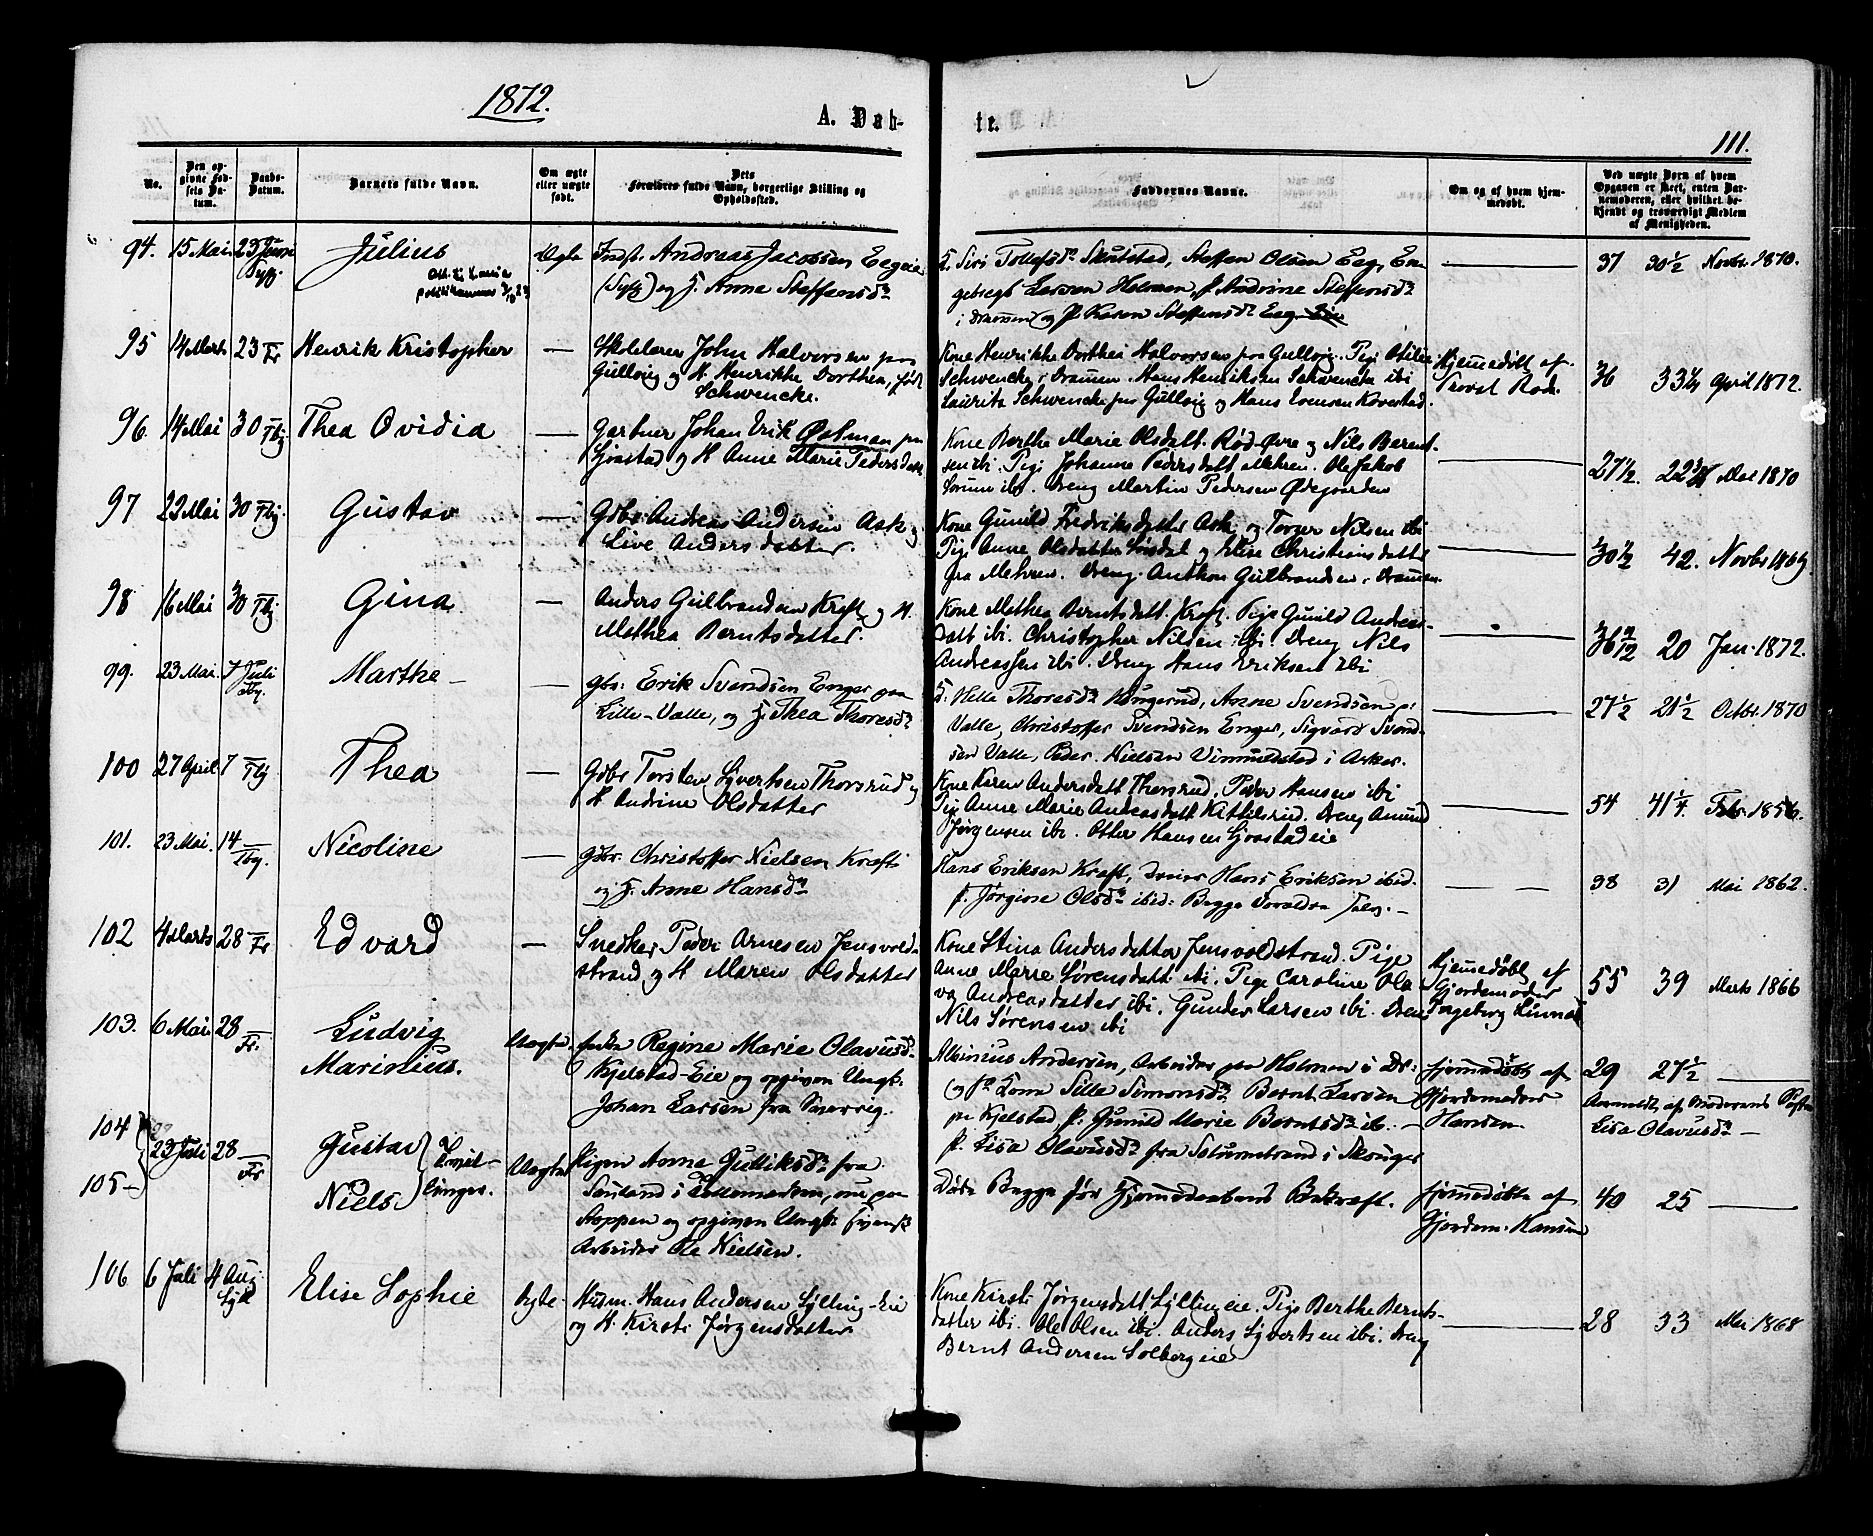 1872.
A. Døb-
te.
111.
No.
Den op-
givne Fød-
sels Da-
tum.
Daabs-
Datum.
Barnets fulde Navn.
Om ægte
eller uægte
født.
Dets
Forældres fulde Navn, borgerlige Stilling og
Opholdssted.
Faddernes Navne.
Om og af hvem hjem-
medøbt.
Ved uægte Børn af hvem
Opgaven er skeet, enten Bar-
nemoderen, eller hvilket be-
kjendt og troværdigt Medlem
af Menigheden.
94. 15 Mai 23 Juni Julius Ægte Indst. Andreas Jacobsen Eegeie
(Syll) og H. Anne Steffensdr
F. Siri Tollefsdr Skulstad, Steffen Olsen Eeg, En-
gebregt Larsen Holmen, P. Andrine Steffensdr
i Drammen og P. Karen Steffensdr Eeg
37 30 1/2 Novbr. 1870.
95 14 Marts 23 Fr Henrik Kristopher — Skolelærer John Halvorsen paa
Gullvig og H. Henrikke Dorthea, født
Schwencke.
Kone Henrikke Dorthea Halvorsen paa Gullvig. Pige
Schwencke, Drammen. Hans Henriksen Schwencke ibi
Laurits Schwencke paa Gullvig og Hans Evensen Koverstad.
Hjemmedøbt af
Provst Rode.
36 33 1/4 April 1872.
96. 14 Mai 30 Tbg Thea Ovidia — Gartner Johan Erik Østman paa
Gjæstad og H. Anne Marie Pedersdatt.
Kone Berthe Marie Olsdatt. Rød-Øvre og Nils Bernt-
sen ibi. Pige Johanne Pedersdatt Mehren. Ole Jakob
Sorum ibi. Dreng Martin Pedersen Ødegaarden
27 1/2. 22 3/4 Mai 1870
97 22 Mai 30 Tbg. Gustav — Gdbr Andreas Andersen Ask og
Live Andersdatter.
Kone Gunild Fredriksdatter Ask og Torger Nilsen ibi
Pige Anne Olsdatter og Elise Christiansdatter
fra Mehren. Dreng Anthon Gulbrandsen, Drammen
30 1/2 42. Novbr 1869.
98 16 Mai 30 Tbg Gina — Anders Gulbrandsen Kraft og H.
Mathea Berntsdatter.
Kone Mathea Berntsdatt. Kraft. Pige Gunild Andreas-
datt ibi. Christopher Nilsen ibi. Dreng Nils
Andreassen ibi. Dreng Hans Eriksen ibi
36 1/2 20 Jan. 1872.
99. 23 Mai. 7 Juli Tbg. Marthe — Gbr. Erik Svendsen Enger paa
Lille-Valle, og H. Thea Thoresdr
F. Helle Thoresdr Kongerud, Anne Svendsen p.
Valle, Christoffer Svendsen Enger, Sigvard Svend-
sen Valle, Peder Nielsen Vimmelstad i Asker.
27 1/2 21 1/2 Octbr. 1870
100 27 April 7 Tbg Thea — Gdbr Torsten Syvertsen Thorsrud og
H Andrine Olsdatter
Kone Karen Andersdatt Thorsrud. Peder Hansen ibi
Pige Anne Marie Andreasdatt Kittilsrud. Dreng Amund
Jørgensen ibi. Otter Hansen Gjæstadeie
54 41 1/4. Febr. 1856.
101. 23 Mai. 14 Tbg. Nicoline — Gdbr. Christoffer Nielsen Kraft
og H. Anne Hansdr
Hans Eriksen Kraft, Hans Eriksen ibid.
P. Jørgine Olsdr ibid: Begge Forældre
38 31 Mai 1862.
102 4 Marts 28 Fr Edvard — Snedker Peder Arnesen Jensvold-
strand og H Maren Olsdatter
Kone Stina Andersdatter Jensvoldstrand. Pige
Anne Marie Sørensdatt ibi. Pige Caroline Ola
va Andreasdatter ibi. Gunder Larsen ibi. Dreng
Nils Sørensen ibi
Hjemmedøbt af
Gjordemoder
Ingeborg
55 39 Marts 1866
103. 6 Mai 28 Fr. Ludvig
Marinius. Uægte Regine Marie Olavusdr
Kjelstad-Eie og opgiven Ungk.
Johan Larsen fra Sverrig.
Albinius Andersen, Arbeider paa Holmen i Dr:
og Kone Sille Simonsdr Bernt Larsen
paa Kjelstad, P. Gunild Marie Berntsdr ib. —
P. Lisa Olavusdr fra Solumstrand i Skouger
Hjemmedøbt af
Gjordemoder
Hansen
29 27 1/2
Anmeldt af Moderens Søster
Lisa Olavusdr —
104
105 23 Juli 28 Fr Gustav
Niels Tvil-
linger. Uægte Pigen Anne Gulliksdr fra
Sauland i Tellemarken, nu paa
Stoppen og opgiven Ungk. Svensk
Arbeider Ole Nielsen.
Døde Begge før Hjemmedaabens Bekræft.
Hjemmedøbte af
Gjordem. Hansen
40 25
106 6 Juli 4 Aug. Elise Sophie Ægte. Husm. Hans Andersen Sylling-Eie
og H. Kirsti Jørgensdatter
Kone Kirsti Jørgensdatt Syllingeie. Pige Berthe Bernts-
datter ibi. Ole Olsen ibi. Anders Syvertsen ibi. Dreng
Bernt Andersen Solbergeie
28 33 Mai 1868